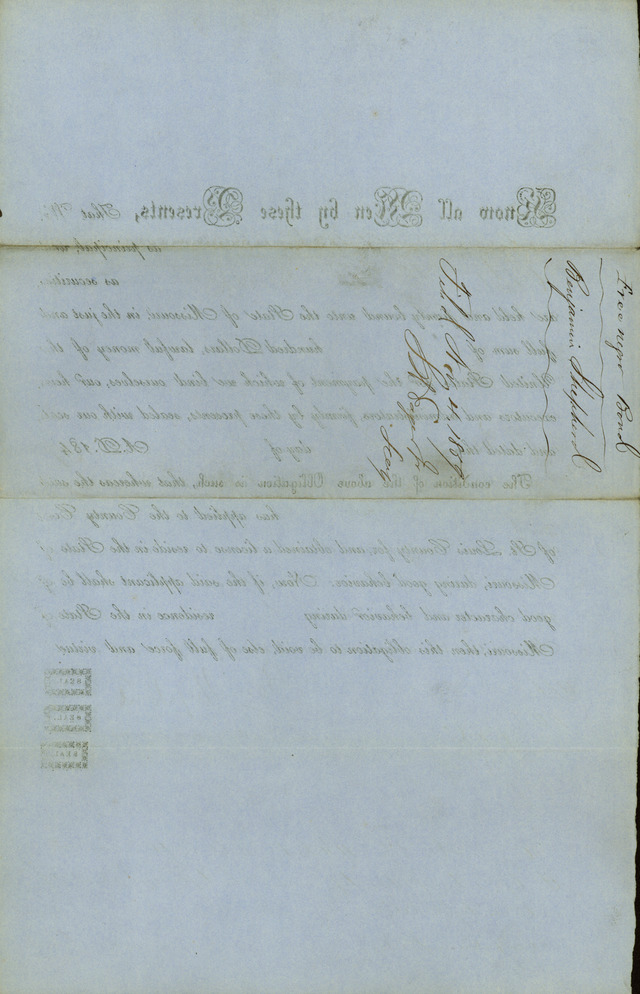 Free negro Bond
Benjamin Shepherd
Filed
Know all Men by these Presents, That We,
as principal,
as securities
held and firmly bound unto the State of Missouri, in the just and
full sum of hundred Dollars, lawful money of the
United States, the payment of which we bind ourselves, our heirs,
executors and firmly by these presents, sealed with our seals
and dated this day of A.D. 184
The condition of the above Obligation is such, that whereas the said
has applied to the County
of St. Louis County for, and obtained a license to reside in the State of
Missouri, during good behavior: Now, if the said applicant shall be of
good character and behavior during residence in the State of
Missouri, then this obligation to be void, else of full force and virtue
SEAL.
SEAL.
SEAL.